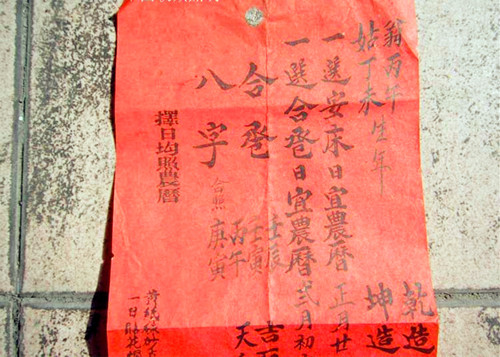 乾造
坤造
翁丙午
姑丁未生年
一選安床日宜農曆正月廿
一選合卺日宜農曆弍月初
合卺
八字
合照
壬辰
壬寅
丙午
庚寅
吉
天
擇日均照農曆
一日